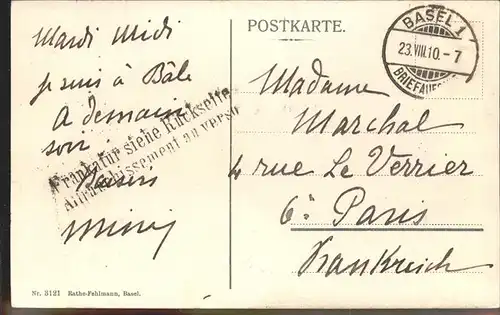 POSTKARTE.
BASEL 1
23.VIII.10.-7
BRIEFAUFG
Mardi Midi
je suis à Bâle
A demain
soir.
Baisers
Frankatur siehe Rückseite
Affranchissement au verso
Madame
Marchal
4 rue Le Verrier
6e Paris
Frankreich
Nr. 3121 Rathe-Fehlmann, Basel.